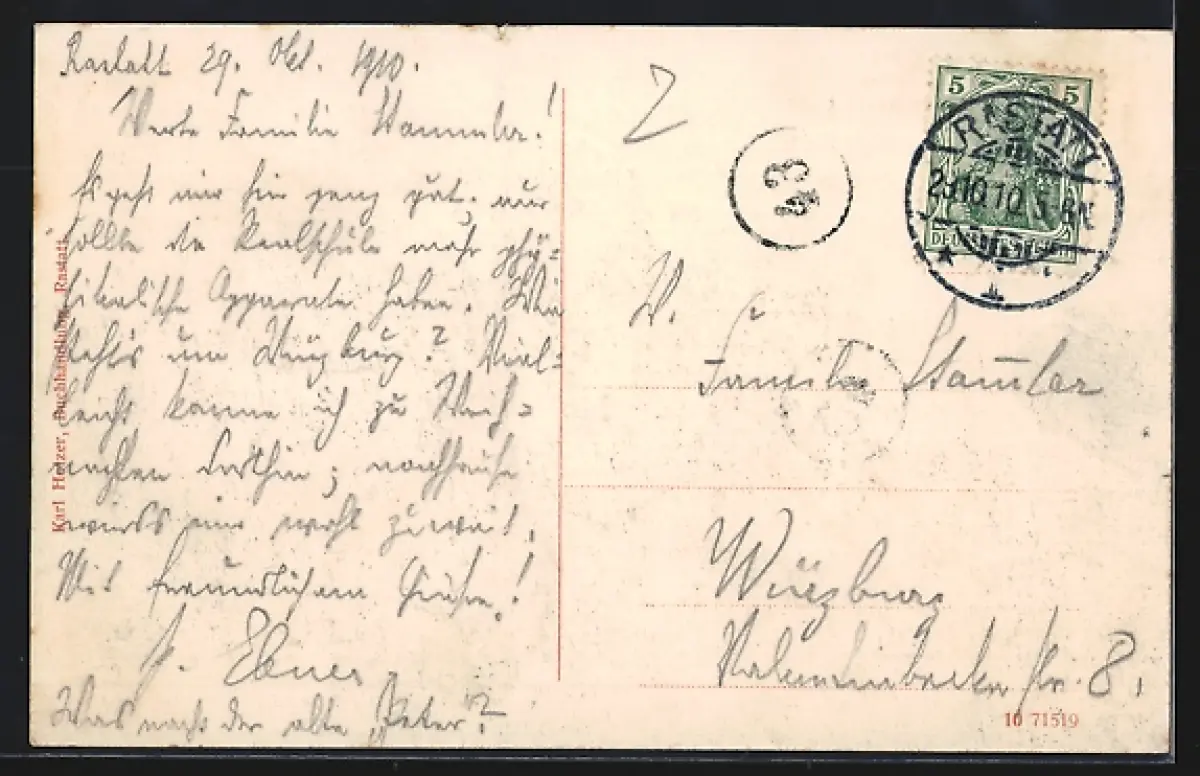 Rastatt 29. Okt. 1910.
Werte Familie Stammler!
Es geht mir hier ganz gut, nur
sollte die Realschule mehr phy-
sikalische Apparate haben. Wie
steht's um Würzburg? Viel-
leicht komme ich zu Weih-
nachten dorthin; nachhause
wird's mir wohl zu weit.
Mit freundlichem Gruße!
Ebner
Was macht der alte „Peter"?
Karl Hetzer, Buchhandlung, Rastatt
5 5
RASTATT
29.10.10. 5-6N.
DEUTSCHES REICH
43
W.
Familie Stam̅ler
Würzburg
8.
10 71519